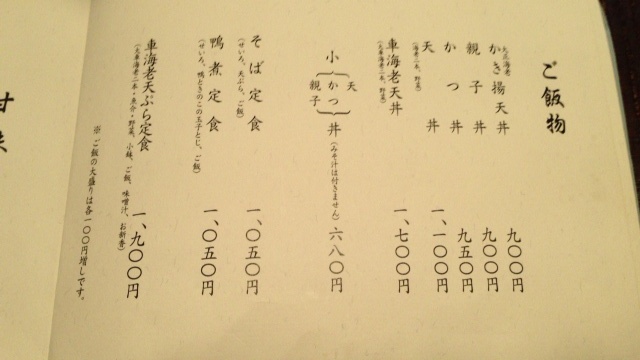 ご飯物
大正海老
かき揚天丼 九〇〇円
親子丼 九〇〇円
かつ丼 九五〇円
天丼 一、一〇〇円
(海老二本、野菜)
車海老天丼 一、七〇〇円
(大車海老二本、野菜)
天
小{かつ}丼(みそ汁は付きません)六八〇円
親子
そば定食 一、〇五〇円
(せいろ、天ぷら、ご飯)
鴨煮定食 一、〇五〇円
(せいろ、鴨ときのこの玉子とじ、ご飯)
車海老天ぷら定食 一、九〇〇円
(大車海老二本・魚介・野菜、小鉢、ご飯、味噌汁、お新香)
※ ご飯の大盛りは各一〇〇円増しです。